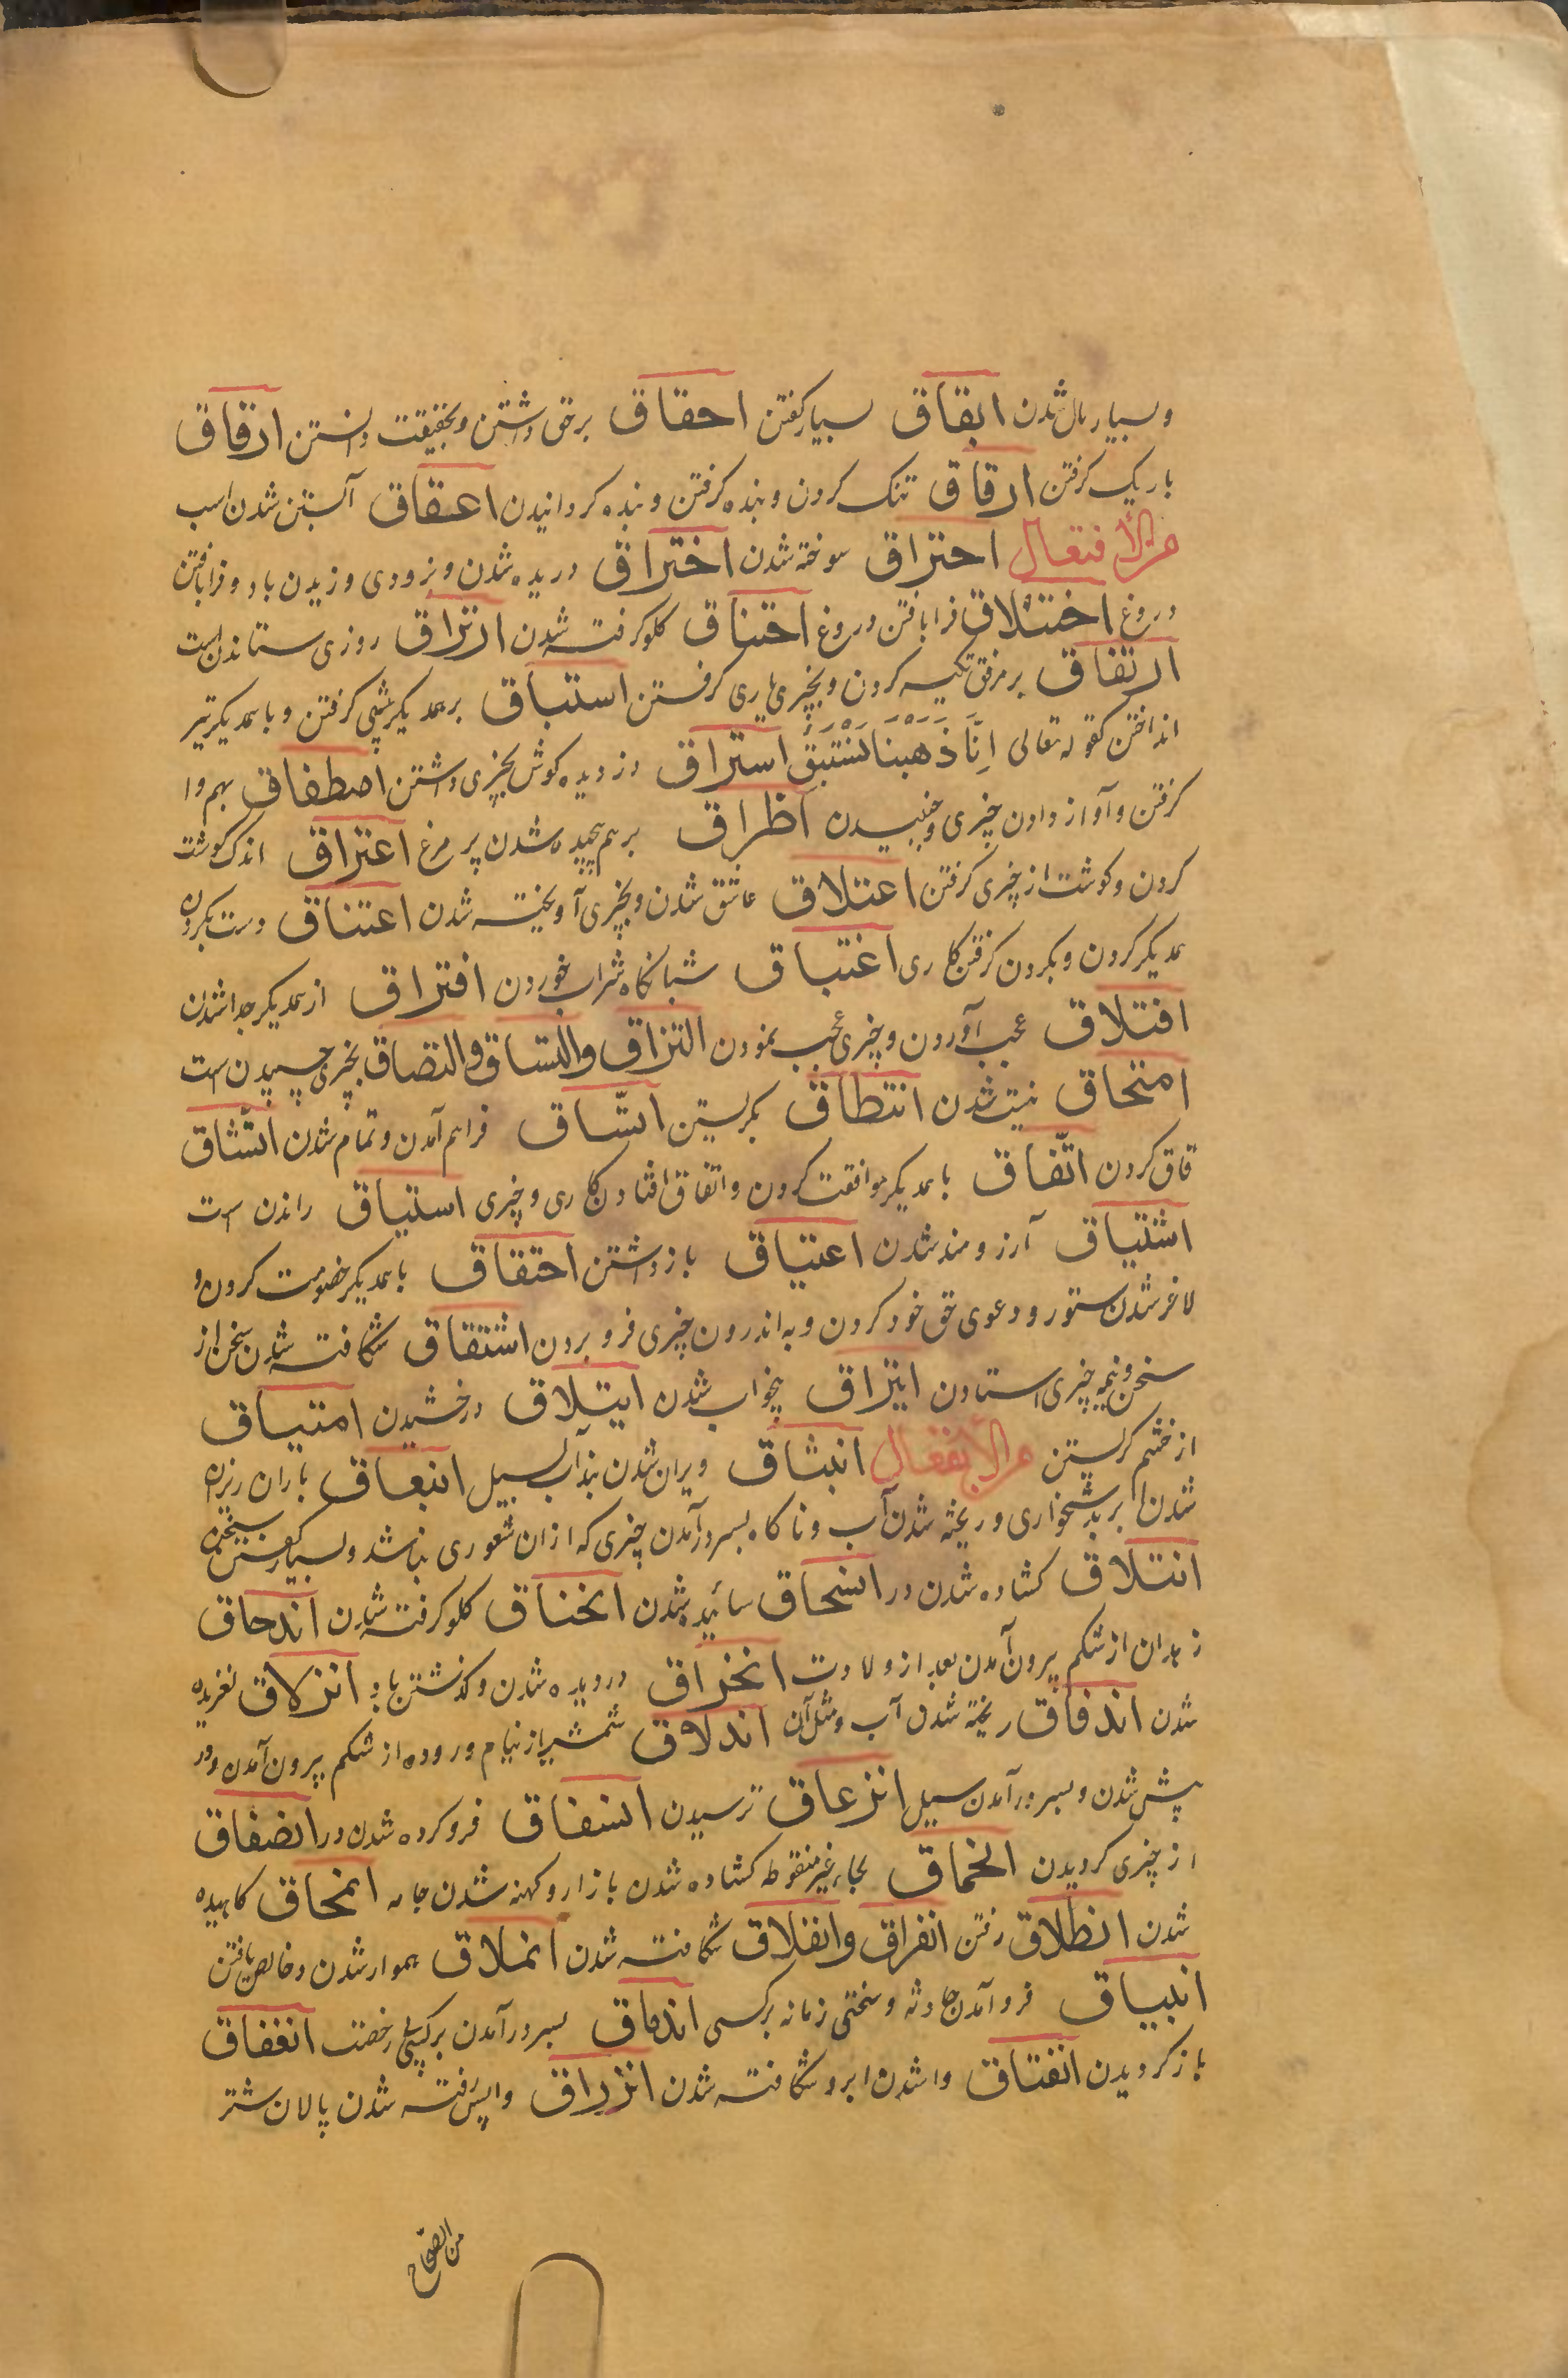 وبسیار مال شدن ابقاق بسیار کفتن احقاق برحق داشتن وبحقیقت دانستن ارقاق
باریک کرفتن ارقاق تنک کردن وبنده کرفتن وبنده کردانیدن اعقاق آبستن شدن اسب
من الأفتعال احتراق سوخته شدن اختراق دریده شدن وبزودی وزیدن باد وفرابافتن
دروغ اختلاق فرابافتن دروغ اختناق کلو کرفته شدن ارتزاق روزی ستاندن است
ارتفاق برمرفق تکیه کردن وبچیزی یاری کرفتن استباق برهمدیکر پیشی کرفتن وباهمدیکر تیر
انداختن کقوله تعالی اِنَّا ذَهَبْنَا نَسْتَبِقُ استراق دزدیده کوش بچیزی داشتن اصطفاق بهم وا
کرفتن وآواز دادن چیزی وجنبیدن اطّراق برهم پیچیده شدن پر مرغ اعتراق اندک کوشت
کردن وکوشت از چیزی کرفتن اعتلاق عاشق شدن وبچیزی آویخته شدن اعتناق دست بکردن
همدیکر کردن وبکردن کرفتن کاری اغتباق شبانکاه شراب خوردن افتراق از همدیکر جدا شدن
افتلاق عجب آوردن وچیزی عجب نمودن التزاق والتساق والتصاق بچیزی چسپیدن است
امتحاق نیست شدن انتطاق کمر بستن اتّساق فراهم آمدن وتمام شدن اتّشاق
قاق کردن اتّفاق باهمدیکر موافقت کردن واتفاق افتادن کاری وچیزی استیاق راندن است
اشتیاق آرزومند شدن اعتیاق بازداشتن احتقاق باهمدیکر خصومت کردن و
لاغر شدن ستور ودعوی حق خود کردن وبه اندرون چیزی فرو بردن اشتقاق شکافته شدن سخن از
سخن ونیمه چیزی استادن ایتزاق بیخواب شدن ایتلاق درخشیدن امتیاق
از خشم کرلستن من الأنفعال انبثاق ویران شدن بند آب لسیل انبعاق باران ریزه
شدن ابر بدشخواری وریخته شدن آب وناکاه بسر درآمدن چیزی که ازان شعوری نباشد وبسیار کفتن سخن
انتلاق کشاده شدن در انسحاق سائیده شدن انخناق کلو کرفته شدن اندحاق
زهدان از شکم بیرون آمدن بعد از ولادت انخراق دردیده شدن وکذشتن باد انزلاق لغزیده
شدن اندفاق ریخته شدن آب ومثل آن اندلاق شمشیر از نیام وروده از شکم بیرون آمدن ودر
پیش شدن وبسر درآمدن سیل انزعاق ترسیدن انسفاق فروکرده شدن در انصفاق
از چیزی کردیدن انحماق بحاء غیر منقوطه کشاده شدن بازار وکهنه شدن جامه انمحاق کاهیده
شدن انطلاق رفتن انفراق وانفلاق شکافته شدن انملاق هموار شدن وخالص یافتن
انبیاق فرو آمدن حادثه وسختی زمانه برکسی اندماق بسر درآمدن برکسی بی رخصت انغفاق
باز کردیدن انفتاق واشدن ابر وشکافته شدن انزراق واپس رفته شدن پالان شتر
من الصحاح